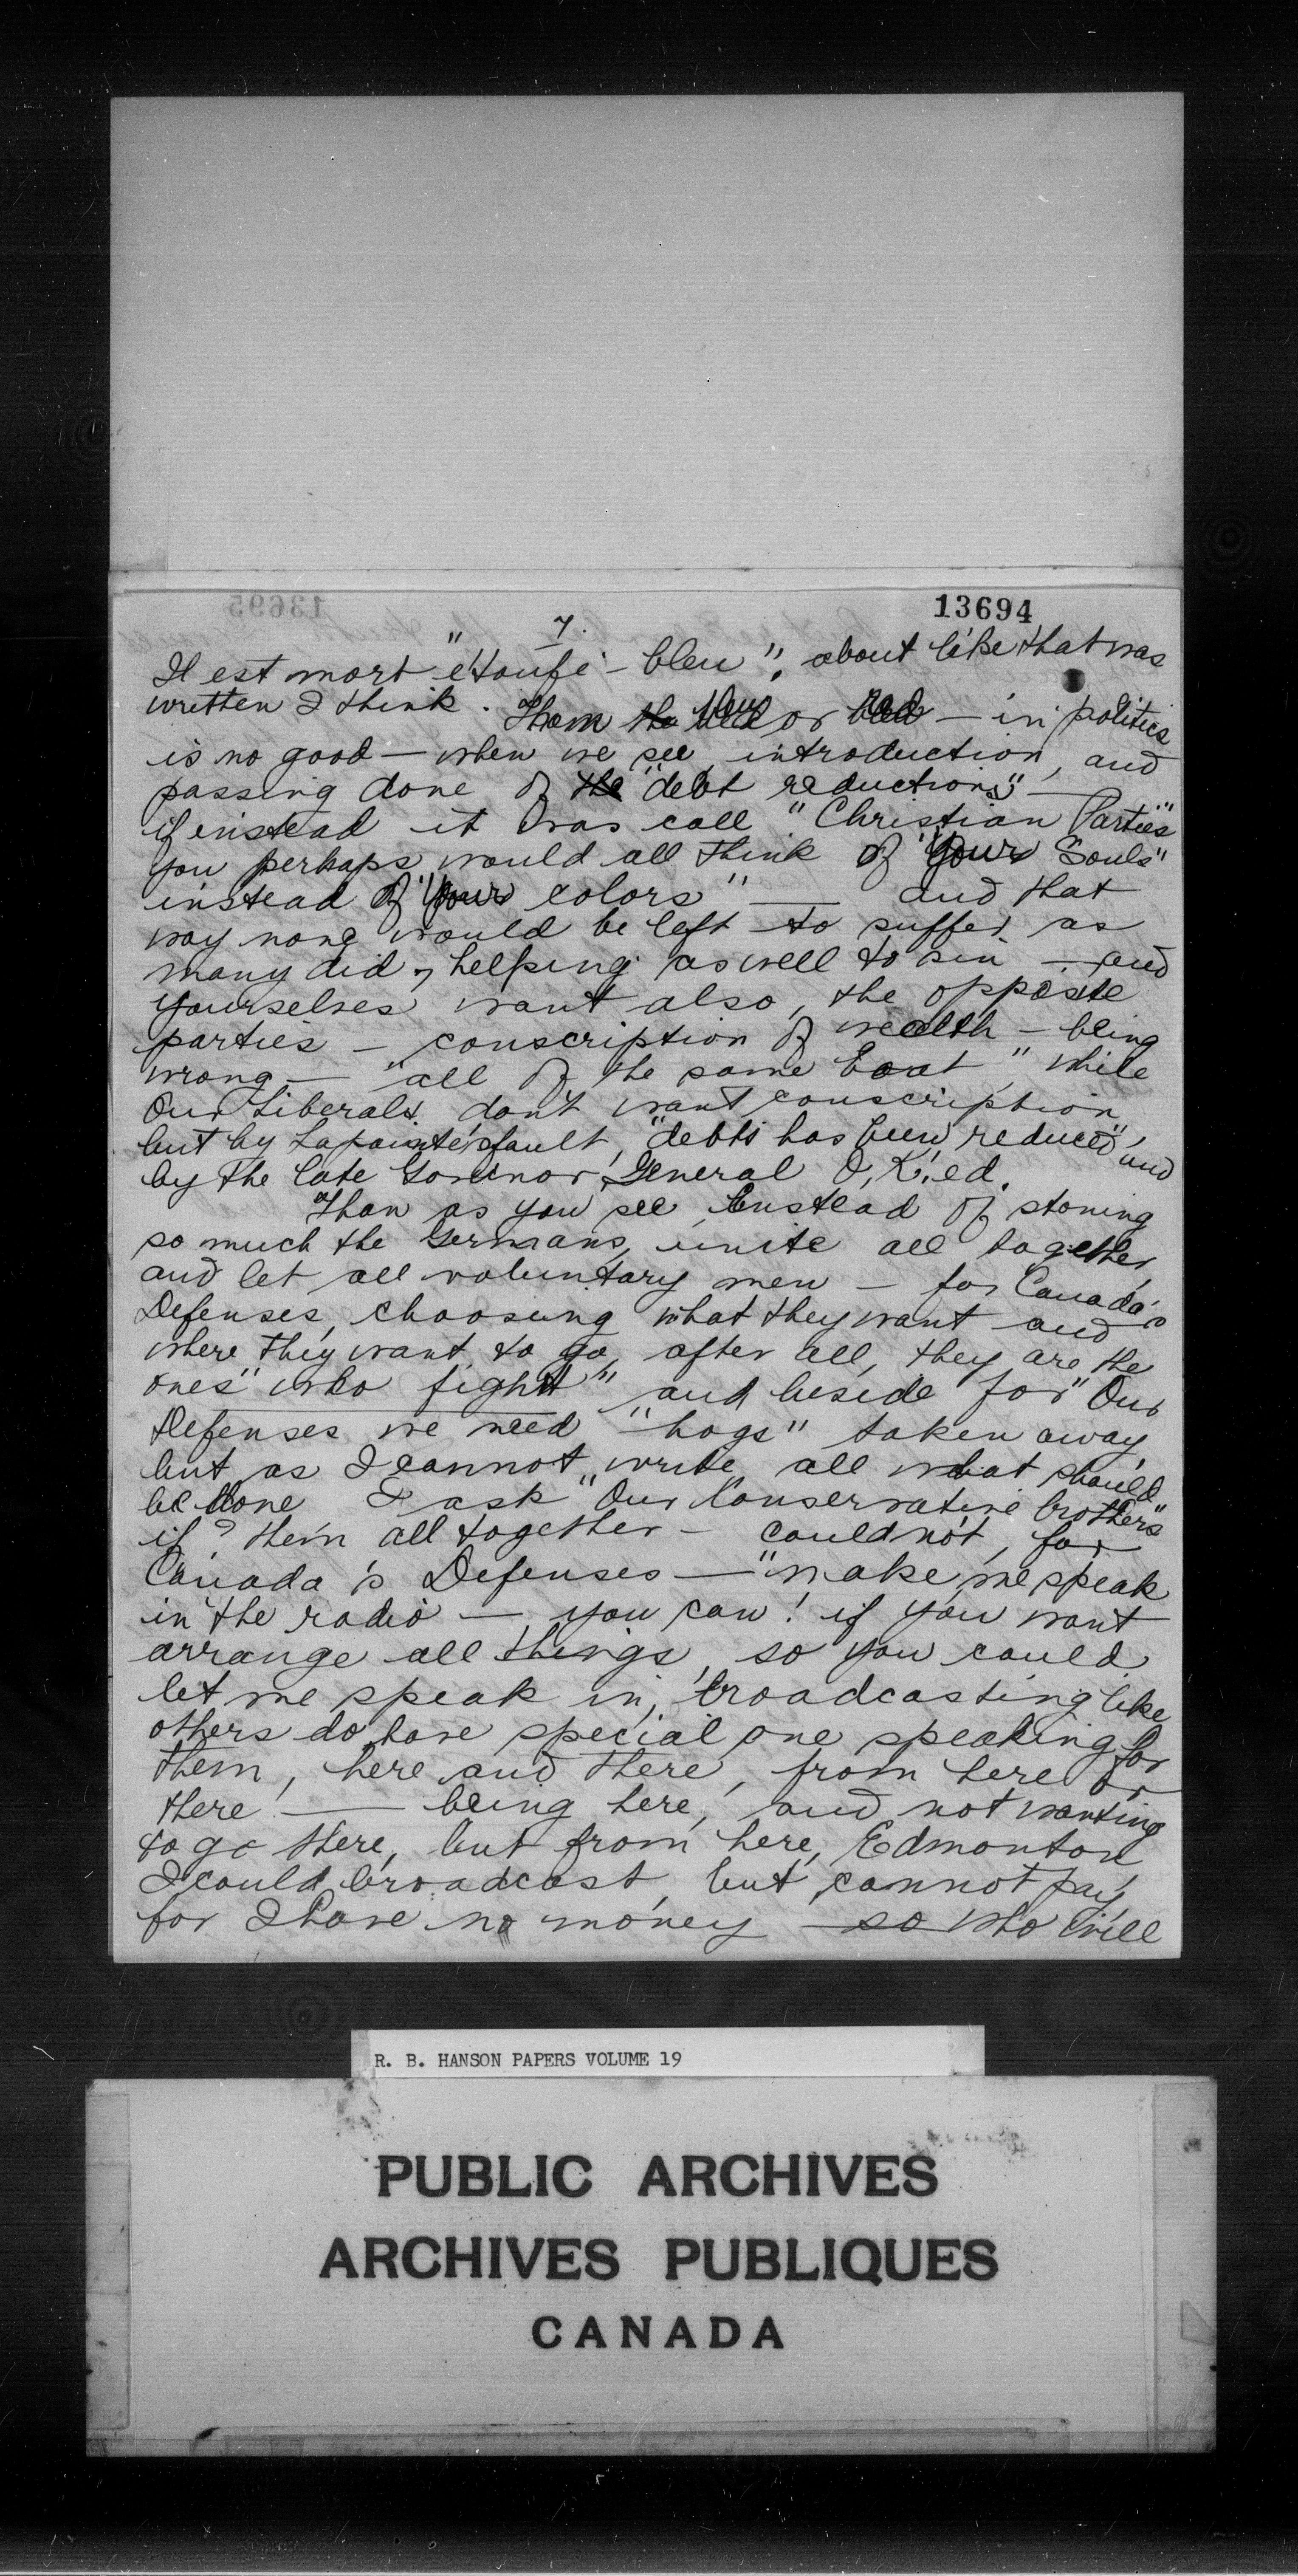 13694
7.
Il est mort "étoufé - bleu", about like that was
written I think. Them blue or red — in politics
is no good — when we see, introduction, and
passing done of the "debt reductions" —
if instead it was call "Christian Parties"
you perhaps would all think of "your Souls"
instead of "your colors" — and that
way none would be left to suffer as
many did, helping as well to sin — and
yourselves want also, the opposite
parties — conscription of wealth — being
wrong — "all of the same boat", while
Our Liberals don't want conscription
but by fault, "debts has been reduced" and
by the late Govenor General O.K.'ed.
Than as you see, instead of stoning
so much the Germans, unite all together
and let all voluntary men — for Canada's
Defenses, choosing what they want and
where they want to go, after all, they are the
ones "who fight" and beside for "Our
Defenses we need "hogs" taken away,
but as I cannot write all what should
be done I ask "Our Conservative brothers"
if? them all together — could not, for
Canada's Defenses — "make me speak
in the radio — you can! if you want
arrange all things, so you could
let me speak in, broadcasting like
others do have special one speaking for
them, here and there, from here or
there — being here, and not wanting
to go there, but from here, Edmonton
I could broadcast, but cannot pay
for I have no money — so who will
R. B. HANSON PAPERS VOLUME 19
PUBLIC ARCHIVES
ARCHIVES PUBLIQUES
CANADA